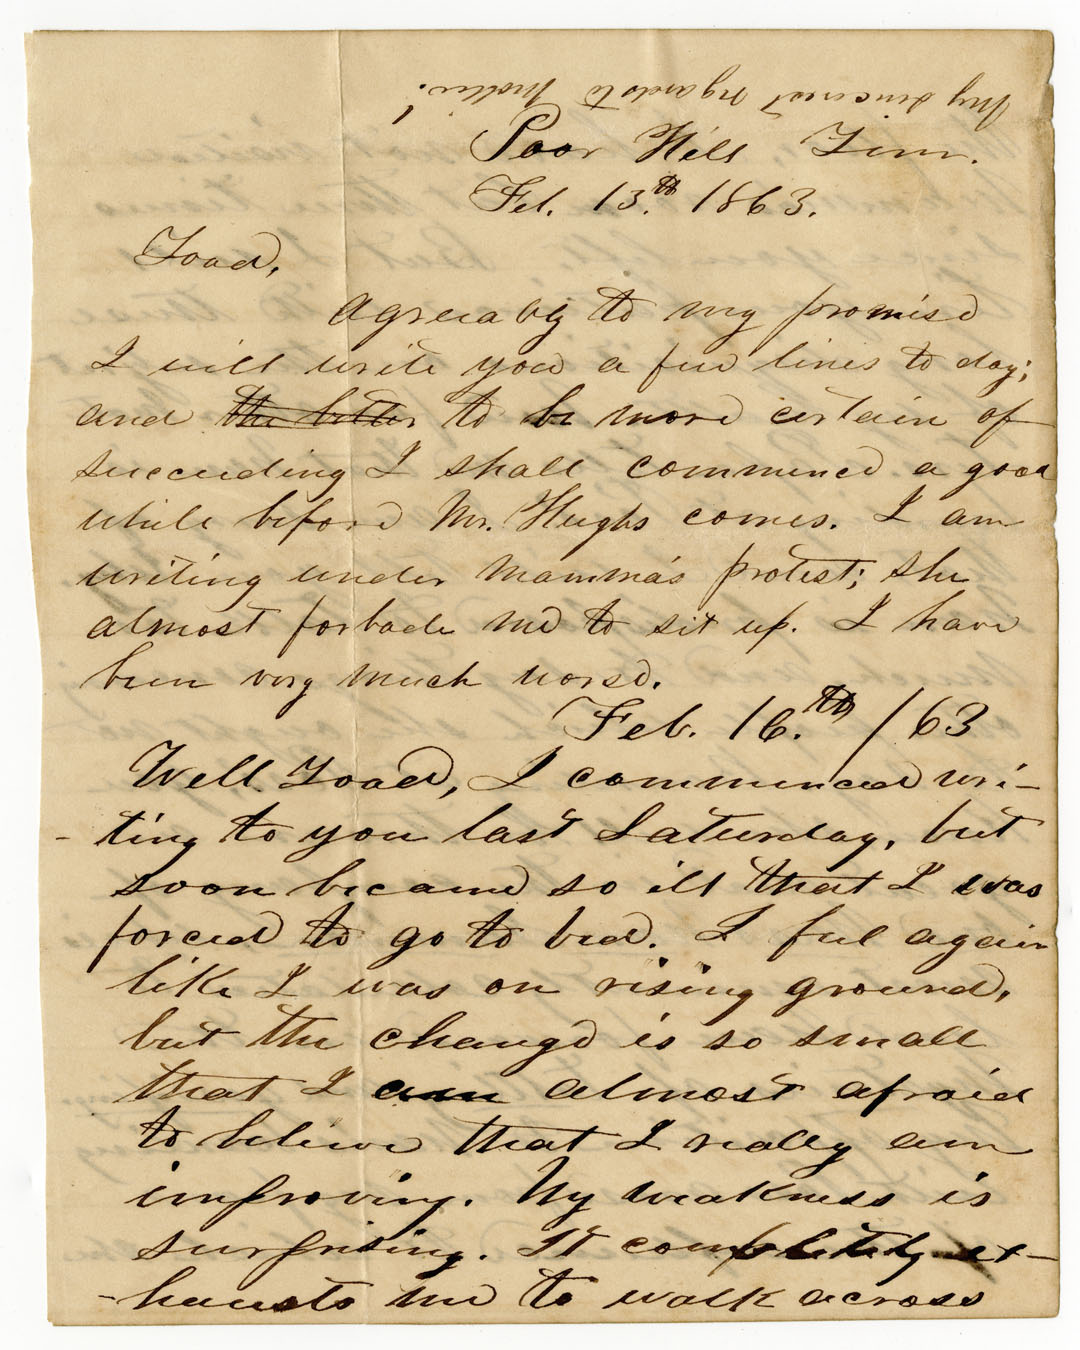 My sincerest regards to Mollie!
Poor Hill Tenn.
Feb. 13.th 1863.
Toad,
Agreeably to my promise
I will write you a few lines to day;
and the better to be more certain of
succeeding I shall commence a good
while before Mr. Hughs comes. I am
writing under Mamma's protest; she
almost forbade me to sit up. I have
been very much worse.
Feb. 16.th /63
Well Toad, I commenced wri-
-ting to you last Saturday, but
soon became so ill that I was
forced to go to bed. I feel again
like I was on rising ground,
but the change is so small
that I am almost afraid
to believe that I really am
improving. My weakness is
surprising. It completely ex-
-hausts me to walk across